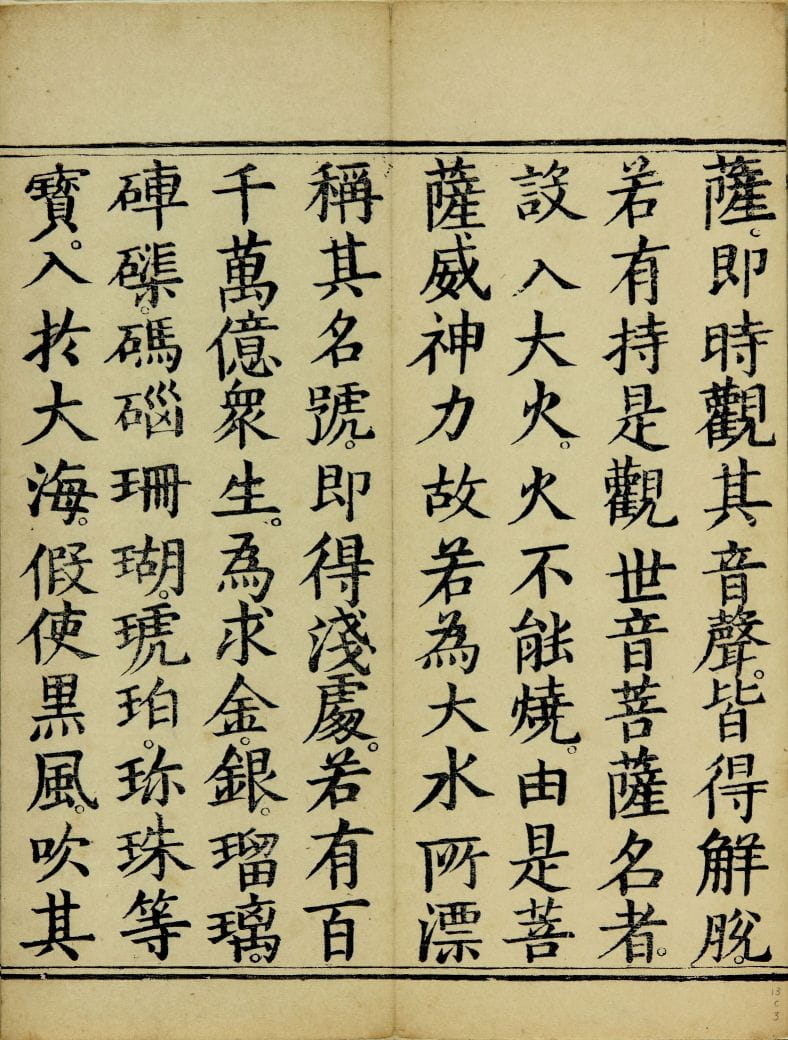 薩。即時觀其音聲。皆得解脫。
若有持是觀世音菩薩名者。
設入大火。火不能燒。由是菩
薩威神力故若為大水所漂
稱其名號。即得淺處。若有百
千萬億眾生。為求金。銀。瑠璃。
硨磲。碼碯珊瑚。琥珀。珎珠等
寳。入於大海。假使黒風。吹其
13
C
3